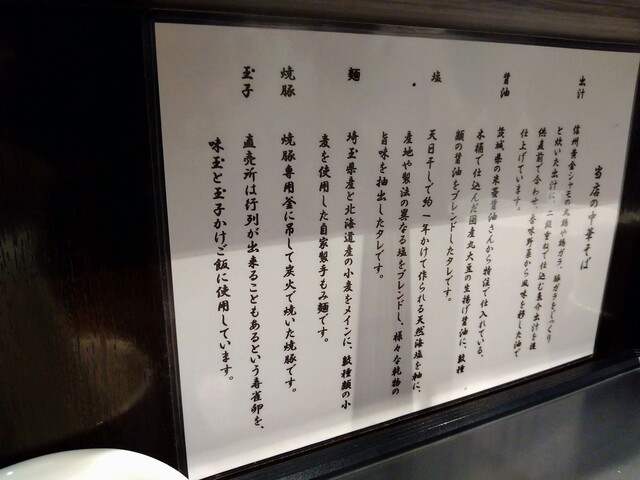 当店の中華そば
出汁
信州黄金シャモの丸鶏や鶏ガラ、豚ガラをじっくり
と炊いた出汁に、二段重ねで仕込む魚介出汁を提
供直前で合わせ、香味野菜から風味を移した油で
仕上げています。
醤油
茨城県の米 醤油さんから特注で仕入れている、
木桶で仕込んだ国産丸大豆の生揚げ醤油に、数種
類の醤油をブレンドしたタレです。
塩
天日干しで約一年かけて作られる天然海塩を軸に、
産地や製法の異なる塩をブレンドし、様々な乾物の
旨味を抽出したタレです。
麺
埼玉県産と北海道産の小麦をメインに、数種類の小
麦を使用した自家製手もみ麺です。
焼豚
焼豚専用釜に吊して炭火で焼いた焼豚です。
玉子
直売所は行列が出来ることもあるという寿雀卵を、
味玉と玉子かけご飯に使用しています。